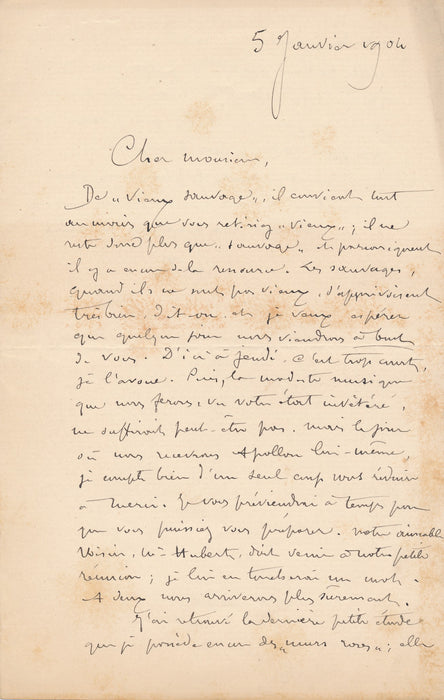 5 Janvier 1904
Cher monsieur,
De "vieux sauvage", il convient tout
au moins que vous retiriez "vieux"; il ne
reste donc plus que "sauvage" et par conséquent
il y a encore de la ressource. Les sauvages,
quand ils ne sont pas vieux, s'apprivoisent
très bien, dit-on, et je veux espérer
que quelque jour nous viendrons à bout
de vous. D'ici à jeudi, c'est trop court,
je l'avoue. Puis, la modeste musique
que nous ferons, vu votre état invétéré,
ne suffirait peut-être pas. mais le jour
où nous recevrons Apollon lui-même,
je compte bien d'un seul coup vous réduire
à merci. Je vous préviendrai à temps pour
que vous puissiez vous préparer. Notre aimable
voisin, Mr Hubert, doit venir à notre petite
réunion; je lui en toucherai un mot.
A deux nous arriverons plus sûrement.
J'ai retrouvé la dernière petite étude
que je possède encore des "murs roses"; elle